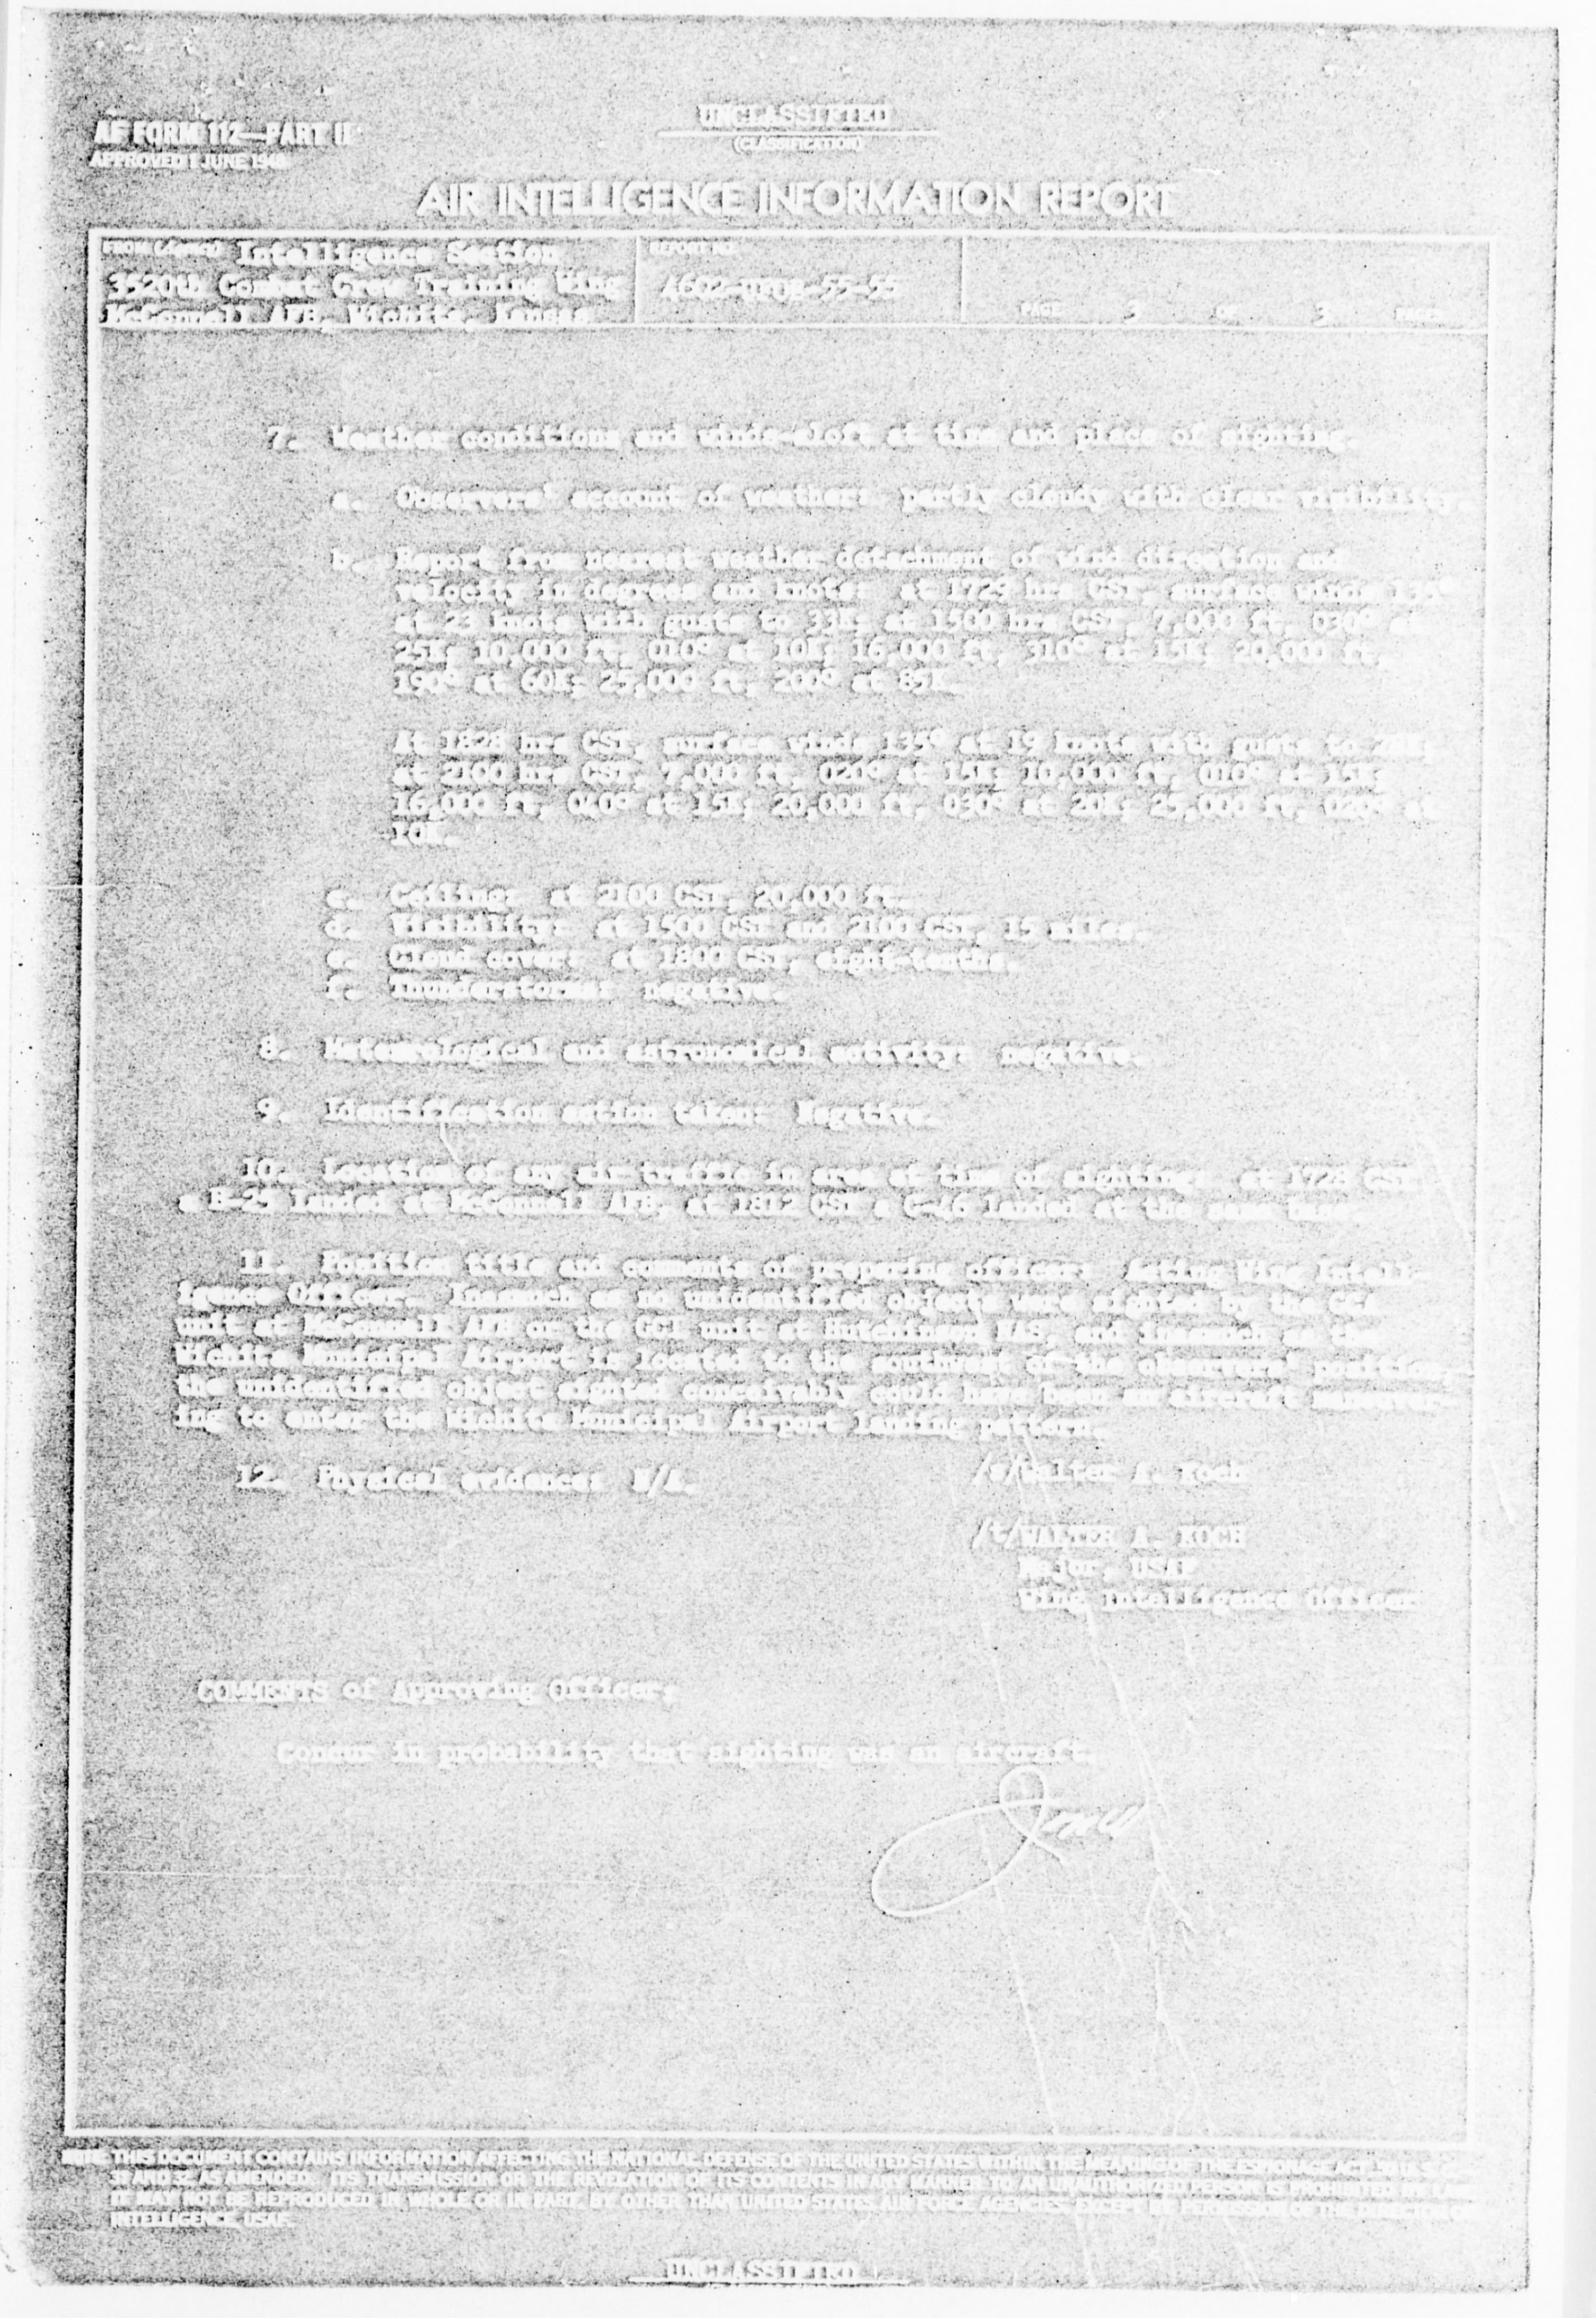 AF FORM 112—PART II
APPROVED 1 JUNE 1948
UNCLASSIFIED
(CLASSIFICATION)
AIR INTELLIGENCE INFORMATION REPORT
Intelligence Section
3520th Combat Crew Training Wing
McConnell AFB, Wichita, Kansas
REPORT NO.
PAGE 3 OF 3 PAGES
7. Weather conditions and winds-aloft at time and place of sighting
a. Observers' account of weather: partly cloudy with clear visibility.
b. Report from nearest weather detachment of wind direction and
velocity in degrees and knots: at 1729 hrs CST, surface winds
at 23 knots with gusts to 33K; at 1500 hrs CST, 7,000 ft, 030°
25K; 10,000 ft, 010° at 10K; 16,000 ft, 310° at 15K; 20,000 ft,
190° at 60K; 25,000 ft, 200° at 85K.
At 1828 hrs CST, surface winds 135° at 19 knots with gusts to
at 2100 hrs CST, 7,000 ft, 020° at 15K; 10,000 ft, 010° at 15K;
16,000 ft, 040° at 15K; 20,000 ft, 030° at 20K; 25,000 ft, 020° at
10K.
c. Ceiling: at 2100 CST, 20,000 ft.
d. Visibility: at 1500 CST and 2100 CST, 15 miles.
e. Cloud cover: at 1800 CST, eight-tenths.
f. Thunderstorms: negative.
8. Meteorological and astronomical activity: negative.
9. Identification action taken: Negative.
10. Location of any air traffic in area at time of sighting: at 1728 CST
a B-25 landed at McConnell AFB; at 1812 CST a C-46 landed at the same base.
11. Position title and comments of preparing officer: Acting Wing Intell-
igence Officer. Inasmuch as no unidentified objects were sighted by the GCA
unit at McConnell AFB or the GCI unit at Hutchinson NAS, and inasmuch as the
Wichita Municipal Airport is located to the southwest of the observers' position,
the unidentified object sighted conceivably could have been an aircraft maneuver-
ing to enter the Wichita Municipal Airport landing pattern.
12. Physical evidence: N/A.
/s/Walter A. Koch
/t/WALTER A. KOCH
Major, USAF
Wing Intelligence Officer
COMMENTS of Approving Officer:
Concur in probability that sighting was an aircraft.
THIS DOCUMENT CONTAINS INFORMATION AFFECTING THE NATIONAL DEFENSE OF THE UNITED STATES WITHIN THE MEANING OF THE ESPIONAGE ACT,
AS AMENDED. ITS TRANSMISSION OR THE REVELATION OF ITS CONTENTS IN ANY MANNER TO AN UNAUTHORIZED PERSON IS PROHIBITED BY LAW.
IT MAY NOT BE REPRODUCED IN WHOLE OR IN PART, BY OTHER THAN UNITED STATES AIR FORCE AGENCIES, EXCEPT BY PERMISSION OF THE DIRECTOR OF
INTELLIGENCE, USAF.
UNCLASSIFIED